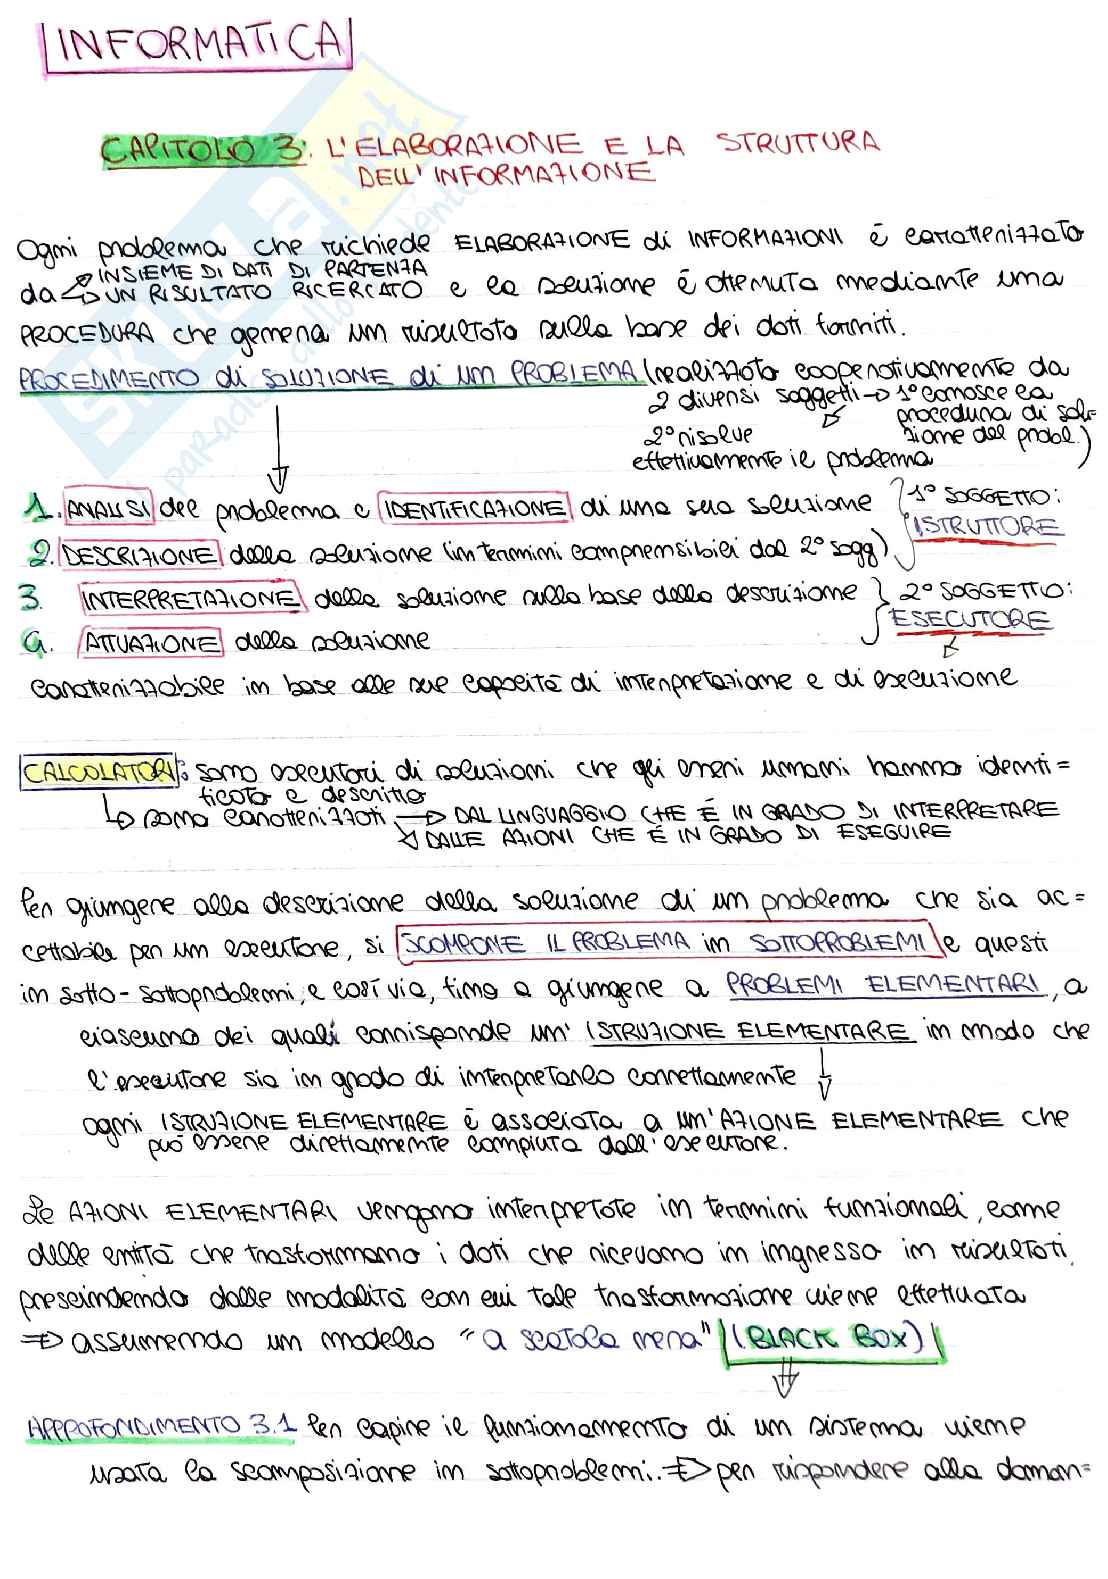 INFORMATICA
CAPITOLO 3: L'ELABORAZIONE E LA STRUTTURA
DELL'INFORMAZIONE
Ogni problema che richiede ELABORAZIONE di INFORMAZIONI é caratterizzato
INSIEME DI DATI DI PARTENZA
da UN RISULTATO RICERCATO e la soluzione é ottenuta mediante una
PROCEDURA che genera un risultato sulla base dei dati forniti.
PROCEDIMENTO di SOLUZIONE di un PROBLEMA (realizzato cooperativamente da
2 diversi soggetti → 1° conosce la
procedura di solu-
2° risolve
zione del probl.)
effettivamente il problema
1. ANALISI del problema e IDENTIFICAZIONE di una sua soluzione
1° SOGGETTO:
ISTRUTTORE
2. DESCRIZIONE della soluzione (in termini comprensibili dal 2° sogg)
3. INTERPRETAZIONE della soluzione sulla base della descrizione } 2° SOGGETTO:
ESECUTORE
4. ATTUAZIONE della soluzione
caratterizzabile in base alle sue capacitá di interpretazione e di esecuzione
CALCOLATORI: sono esecutori di soluzioni che gli esseri umani hanno identi=
ficato e descritto
↳ sono caratterizzati → DAL LINGUAGGIO CHE É IN GRADO DI INTERPRETARE
↘ DALLE AZIONI CHE É IN GRADO DI ESEGUIRE
Per giungere alla descrizione della soluzione di un problema che sia ac=
cettabile per un esecutore, si SCOMPONE IL PROBLEMA in SOTTOPROBLEMI e questi
in sotto-sottoproblemi, e cosí via, fino a giungere a PROBLEMI ELEMENTARI, a
ciascuno dei quali corrisponde un' ISTRUZIONE ELEMENTARE in modo che
l'esecutore sia in grado di interpretarlo correttamente
ogni ISTRUZIONE ELEMENTARE é associata a un'AZIONE ELEMENTARE che
puó essere direttamente compiuta dall'esecutore.
Le AZIONI ELEMENTARI vengono interpretate in termini funzionali, come
delle entitá che trasformano i dati che ricevono in ingresso in risultati,
prescindendo dalle modalitá con cui tale trasformazione viene effettuata
⇒ assumendo un modello "a scatola nera" (BLACK BOX)
APPROFONDIMENTO 3.1 Per capire il funzionamento di un sistema viene
usata la scomposizione in sottoproblemi. ⇒ per rispondere alla doman=
SKUOLA.net